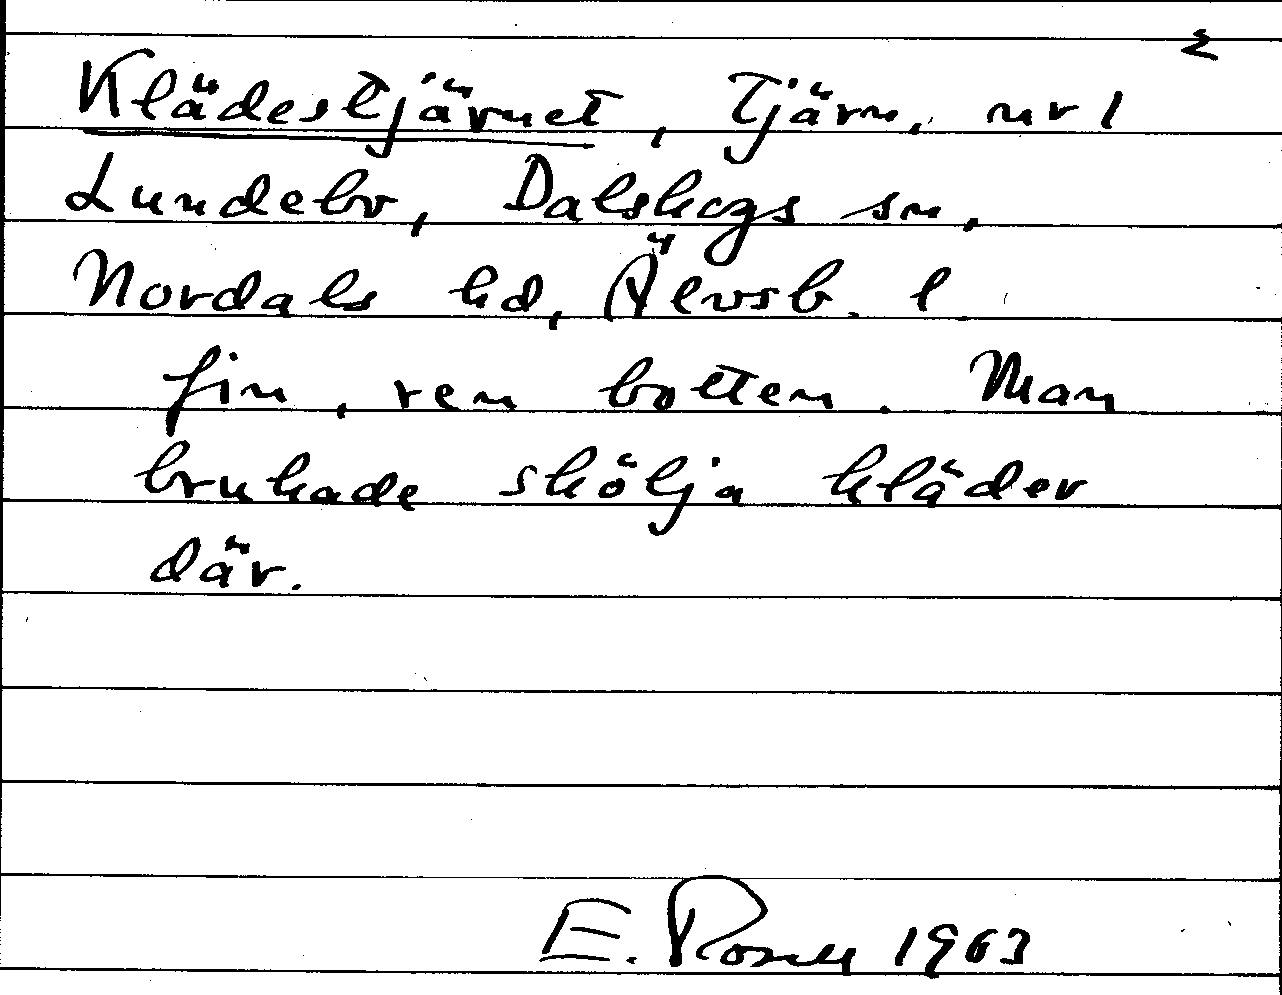 2
Klädestjärnet, Tjärn, nr 1
Lundebo, Dalskogs sn,
Nordals hd, Älvsb. l
fin, ren botten. Man
brukade skölja kläder
där.
E. Rosell 1963